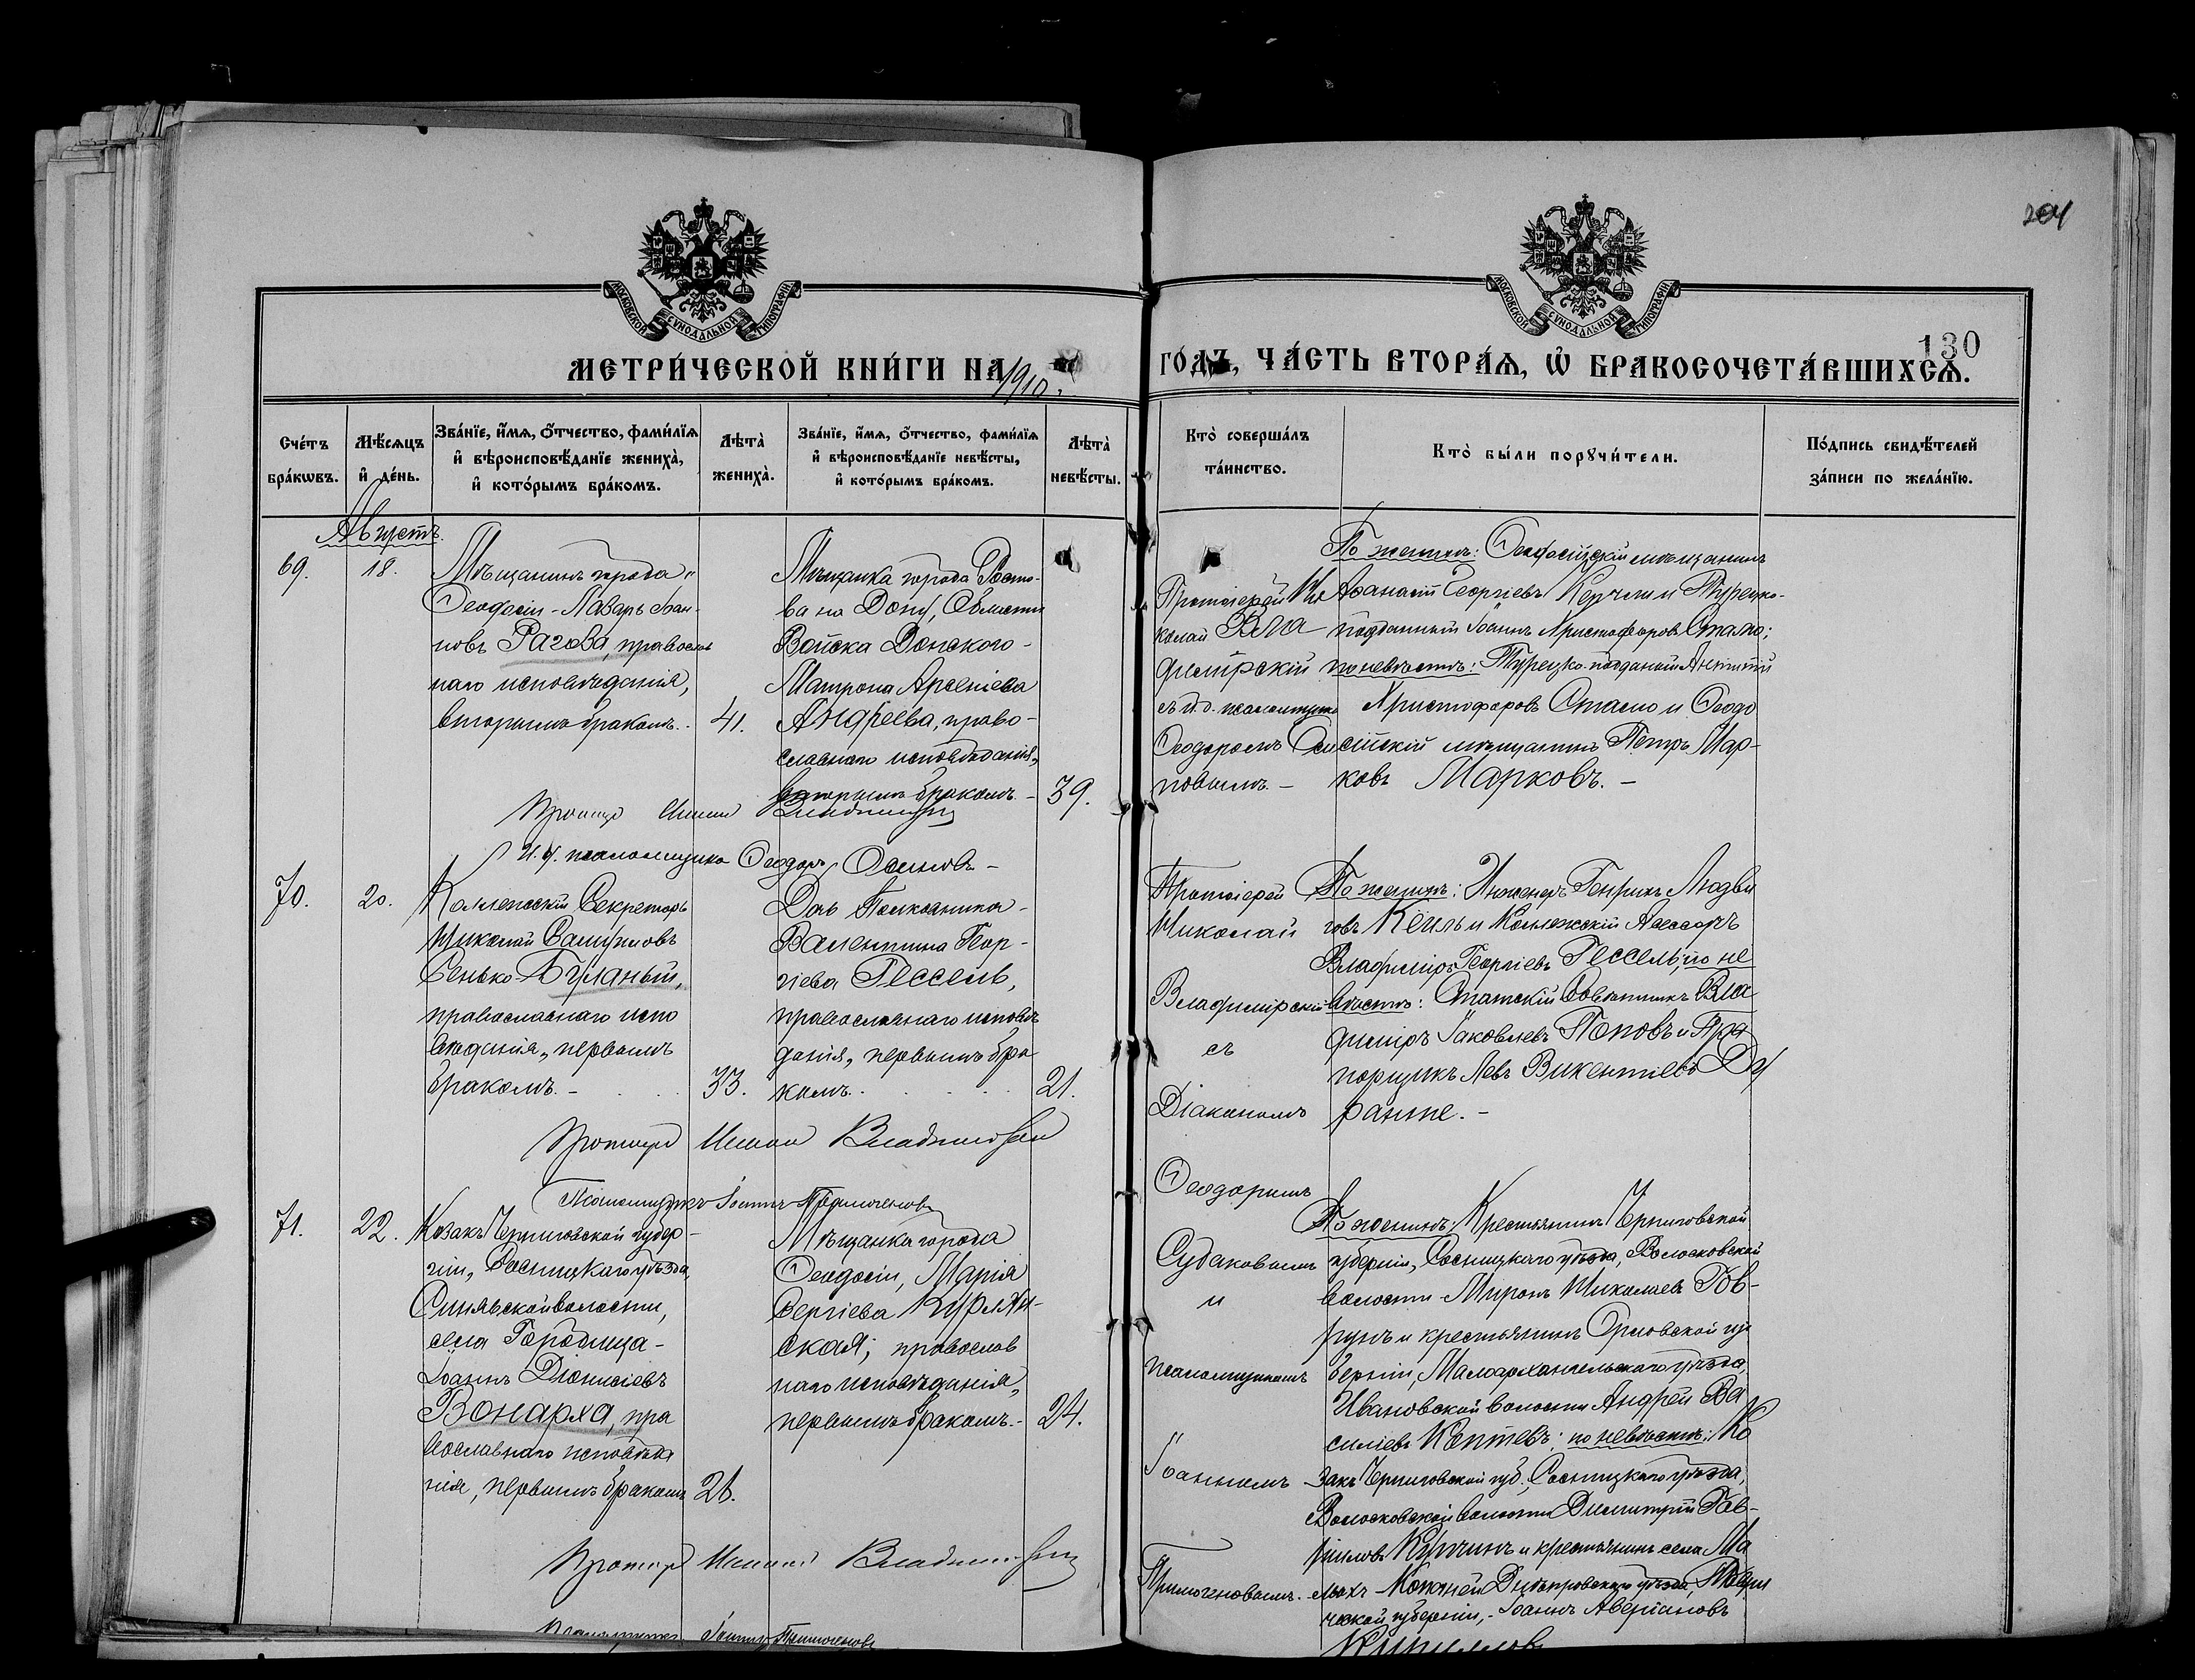 204
130
МОСКОВСКОЙ СѴНОДАЛЬНОЙ ТИПОГРАФІИ
МОСКОВСКОЙ СѴНОДАЛЬНОЙ ТИПОГРАФІИ
МЕТРИ́ЧЕСКОЙ КНИ́ГИ НА 1910 ГО́ДЪ, ЧА́СТЬ ВТОРА́Ѧ, Ѽ БРАКОСОЧЕТА́ВШИХСѦ.
Сче́тъ бра́кѡвъ.
Мѣ́сяцъ и҆ де́нь.
Зва́нїе, и҆́мя, ѻ҆́тчество, фами́лїя
и҆ вѣроисповѣ́данїе жениха̀,
и҆ кото́рымъ бра́комъ.
Лѣта̀ жениха̀.
Зва́нїе, и҆́мя, ѻ҆́тчество, фами́лїя
и҆ вѣроисповѣ́данїе невѣ́сты,
и҆ кото́рымъ бра́комъ.
Лѣта̀ невѣ́сты.
Кто̀ соверша́лъ та́инство.
Кто̀ бы́ли порꙋчи́тели.
По́дпись свидѣ́телей за́писи по жела́нїю.
Августъ.
69.
18.
Мѣщанинъ города
Ѳеодосіи - Лазарь Іоан-
новъ Рагова, православ
наго исповѣданія,
вторымъ бракомъ.
41.
Мѣщанка города Росто-
ва на Дону, Области
Войска Донского -
Матрона Арсеніева
Андреева, право-
славнаго исповѣданія,
вторымъ бракомъ. -
39.
Протоіерей Ни
колай Вла
димірскій
съ и.д. псаломщика
Ѳеодоромъ Оси
повымъ. -
По женихѣ: Ѳеодосійскій мѣщанинъ
Аѳанасій Георгіевъ и Турецко-
подданный Іоаннъ Христофоровъ Стамо;
по невѣстѣ: Турецко-подданный
Христофоровъ Стамо и Ѳеодо
сійскій мѣщанинъ Петръ Мар-
ковъ Марковъ. -
И. д. псаломщика Ѳеодоръ Осиповъ -
70.
20.
Коллежскій Секретарь
Николай Самуиловъ
Сенько-Буланый,
православнаго испо
вѣданія, первымъ
бракомъ. -
33.
Дочь Полковника -
Валентина Геор-
гіева Гессель,
православнаго исповѣ
данія, первымъ бра
комъ.
21.
Протоіерей
Николай
Владимірскій
съ
Діакономъ
Ѳеодоромъ
Судаковымъ
и
псаломщикомъ
Іоанномъ
Примоченковымъ.
По женихѣ: Инженеръ Генрихъ Людви
говъ Кейль и Коллежскій Ассесоръ
Владиміръ Георгіевъ Гессель; по не
вѣстѣ: Статскій Совѣтникъ Вла
диміръ Іаковлевъ Поповъ и Пра
порщикъ Левъ Викентіевъ Ду
ранте. -
Псаломщикъ Іоаннъ Примоченковъ
71.
22.
Козакъ Черниговской губер-
ніи, Сосницкаго уѣзда,
Синявской волости,
села Городища -
Іоаннъ Діонисіевъ
Вонарха, пра
вославнаго исповѣда
нія, первымъ бракомъ
Мѣщанка города
Ѳеодосіи, Марія
Сергіева Курлян-
ская, православ
наго исповѣданія,
первымъ бракомъ. -
24.
По женихѣ: Крестьянинъ Черниговской
губерніи, Сосницкаго уѣзда, Волосковской
волости - Миронъ Николаевъ Гов-
рунъ и крестьянинъ Орловской гу
берніи, Малоархангельскаго уѣзда,
Ивановской волости Андрей Ва
силіевъ Коптевъ; по невѣстѣ: Ко
закъ Черниговской губ., Сосницкаго уѣзда,
Волосковской волости Димитрій Гав-
риловъ и крестьянинъ села Ма
Днѣпровскаго уѣзда, Таври
ческой губерніи, - Іоаннъ Аверіановъ
Псаломщикъ Іоаннъ Примоченковъ